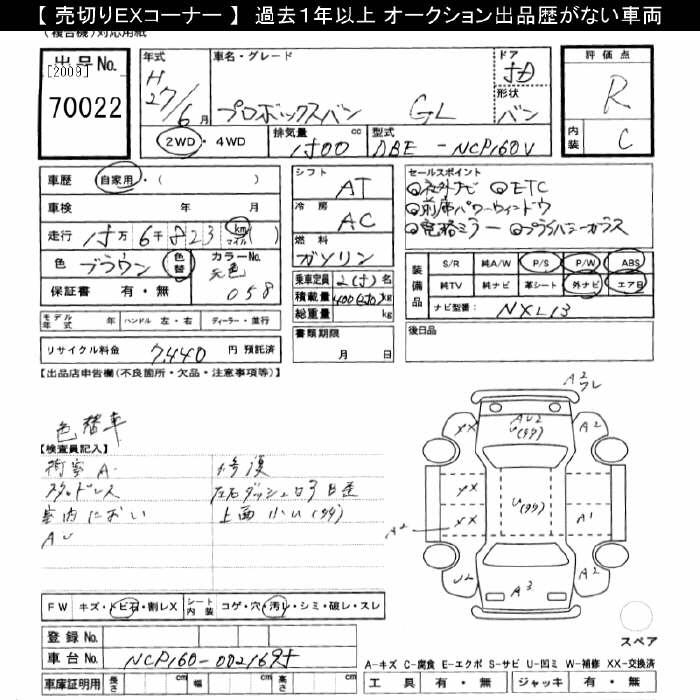 【 売切りEXコーナー 】 過去１年以上 オークション出品歴がない車両
(複合機)対応用紙
出品No.
[2009]
70022
年式
H
27/6月
車名・グレード
プロボックスバン GL
ドア
形状
バン
評価点
R
内装
C
2WD・4WD
排気量 cc
型式
DBE-NCP160V
車歴 自家用・( )
車検 年 月
走行 万 6千 823 km マイル( )
色 ブラウン 色替
カラーNo.
元色
058
保証書 有・無
シフト
AT
冷房
AC
燃料
ガソリン
乗車定員 2(5)名
積載量 kg
総重量 kg
セールスポイント
社外ナビ ETC
前席パワーウィンドウ
電格ミラー プライバシーガラス
装備品
S/R 純A/W P/S P/W ABS
純TV 純ナビ 革シート 外ナビ エアB
ナビ型番: NXL13
モデル年式 年 ハンドル 左・右 ディーラー・並行
リサイクル料金 7,440 円 預託済
書類期限
月 日
後日品
【出品店申告欄(不良箇所・欠品・注意事項等)】
色替車
【検査員記入】
荷室A
修復
スタッドレス
室内におい
上面小U(99)
AU
A2
AU2
U(99)
XX
A2
YX
U(99)
XX
A1
A2
A3
FW キズ・トビ石・割レX
シート内装 コゲ・穴・汚レ・シミ・破レ・スレ
登録No.
車台No. NCP160-0021695
車庫証明用 長さ cm 幅 cm 高さ cm
スペア
A-キズ C-腐食 E-エクボ S-サビ U-凹ミ W-補修 XX-交換済
工具 有・無 ジャッキ 有・無